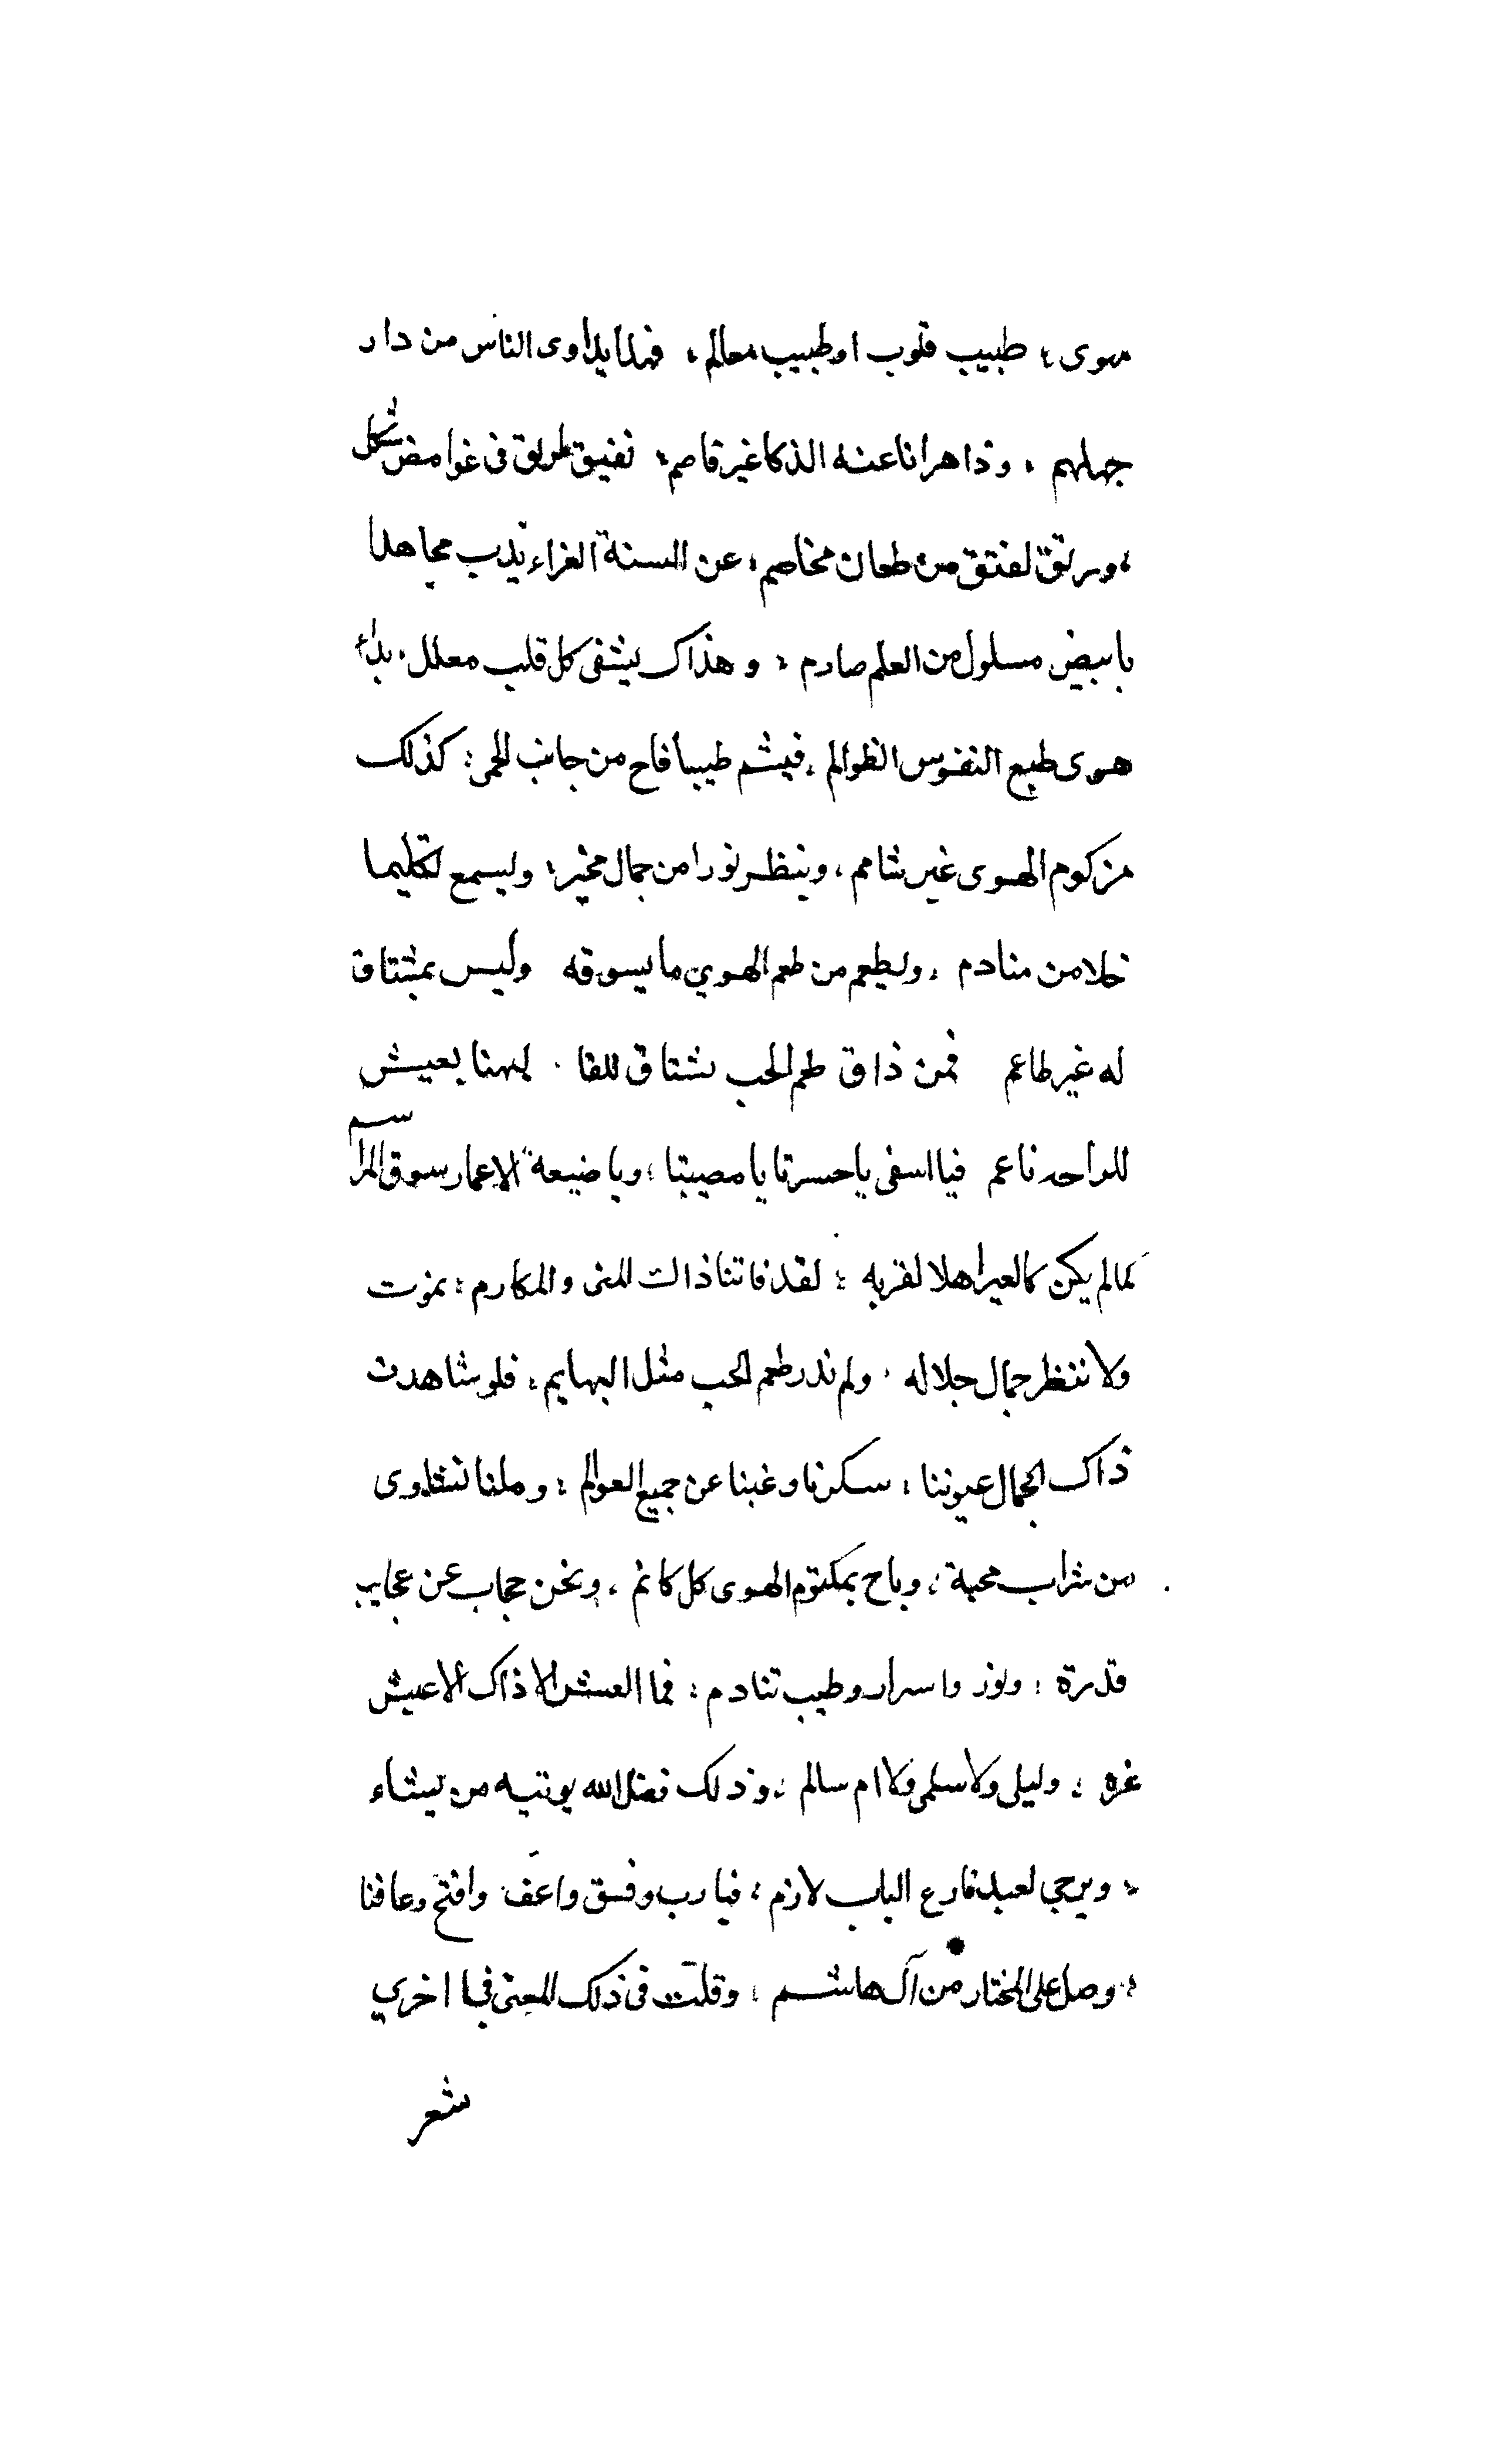 هوى؛ طبيب قلوب او طبيب معالم، فهذا يداوى الناس من دار
جهلهم، وذا هرانا عنه الذكا غير قاصم؛ نفيق لمرتق فى غوامض شكل
، ويرتق لفتق من طعان مخاصم؛ عن السنة الغراء يذب مجاهدا
بابيض مسلول من العلم صارم؛ وهذاك يشفى كل قلب معلل، بداء
هوى طبع النفوس الظوالم، فيشم طيبا فاح من جانب الحمى؛ كذلك
مزكوم الهوى غير شامم، وينظر نورا من جمال مخير؛ وليسمع تكليما
خلا من منادم، وليطعم من طعم الهوي ما يسوقه وليس بمشتاق
له غير طاعم فمن ذاق طعم الحب يشتاق للقا، ليهنا بعيش
للواحد ناعم فيا اسفى يا حسرتا يا مصيبتا؛ ويا ضيعة الاعمار سوق المراسم
لمالم يكن كالعير اهلا لقربه؛ لقد فاتنا ذات المنى والمكارم؛ نموت
ولا ننتظر جمال جلاله، ولم ندر طعم الحب مثل البهايم؛ فلو شاهدت
ذاك الجمال عيوننا؛ سكرنا وغبنا عن جميع العوالم؛ وملنا نشاوى
من شراب محبة؛ وباح بمكتوم الهوى كل كاتم، ونحن حجاب عن عجايب
قدرة؛ ونور واسرار وطيب تنادم؛ فما العيش الا ذاك لا عيش
غره؛ وليلى ولا سلمى ولا ام سالم؛ وذلك فضل الله يوتيه من يشاء
، ويرجي لعبد قارع الباب لازم؛ فيا رب وفق واعف وافتح وعافنا
؛ وصل على المختار من آل هاشم، وقلت فى ذلك المعنى فيا اخري
شعر